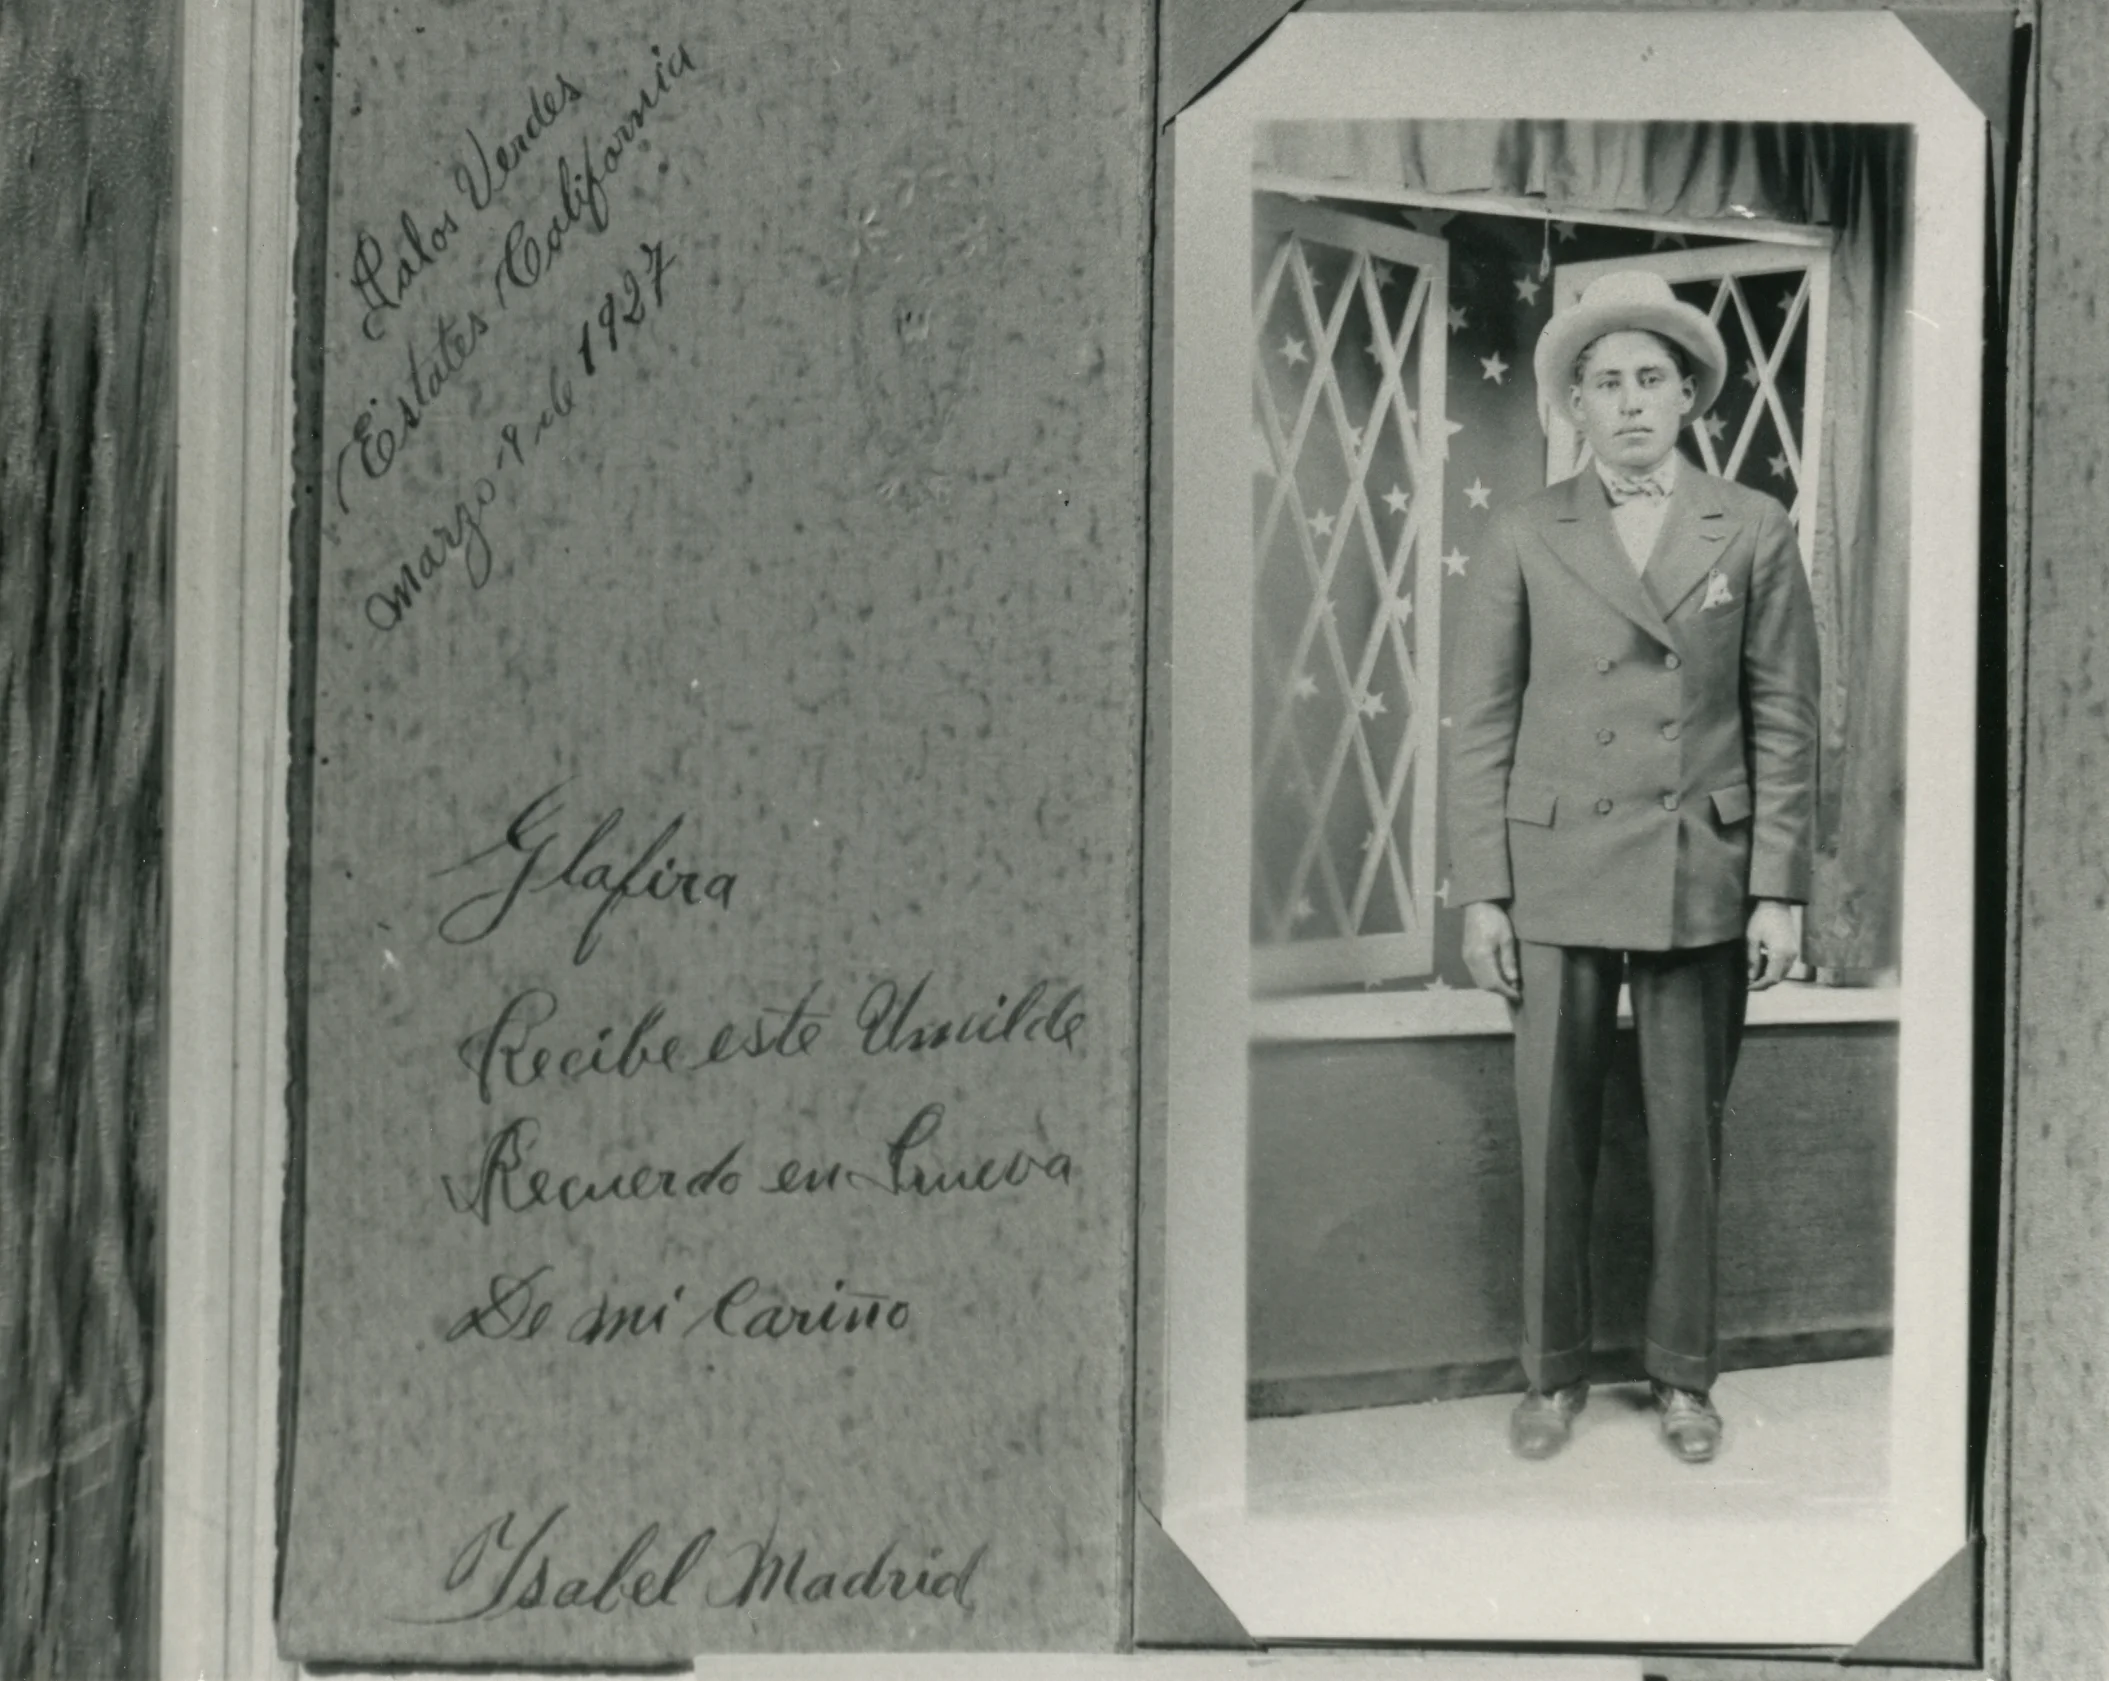 Palos Verdes
Estates California
marzo-9 de 1927
Glafira
Recibe este Umilde
Recuerdo en Prueva
De mi Cariño
Ysabel Madrid